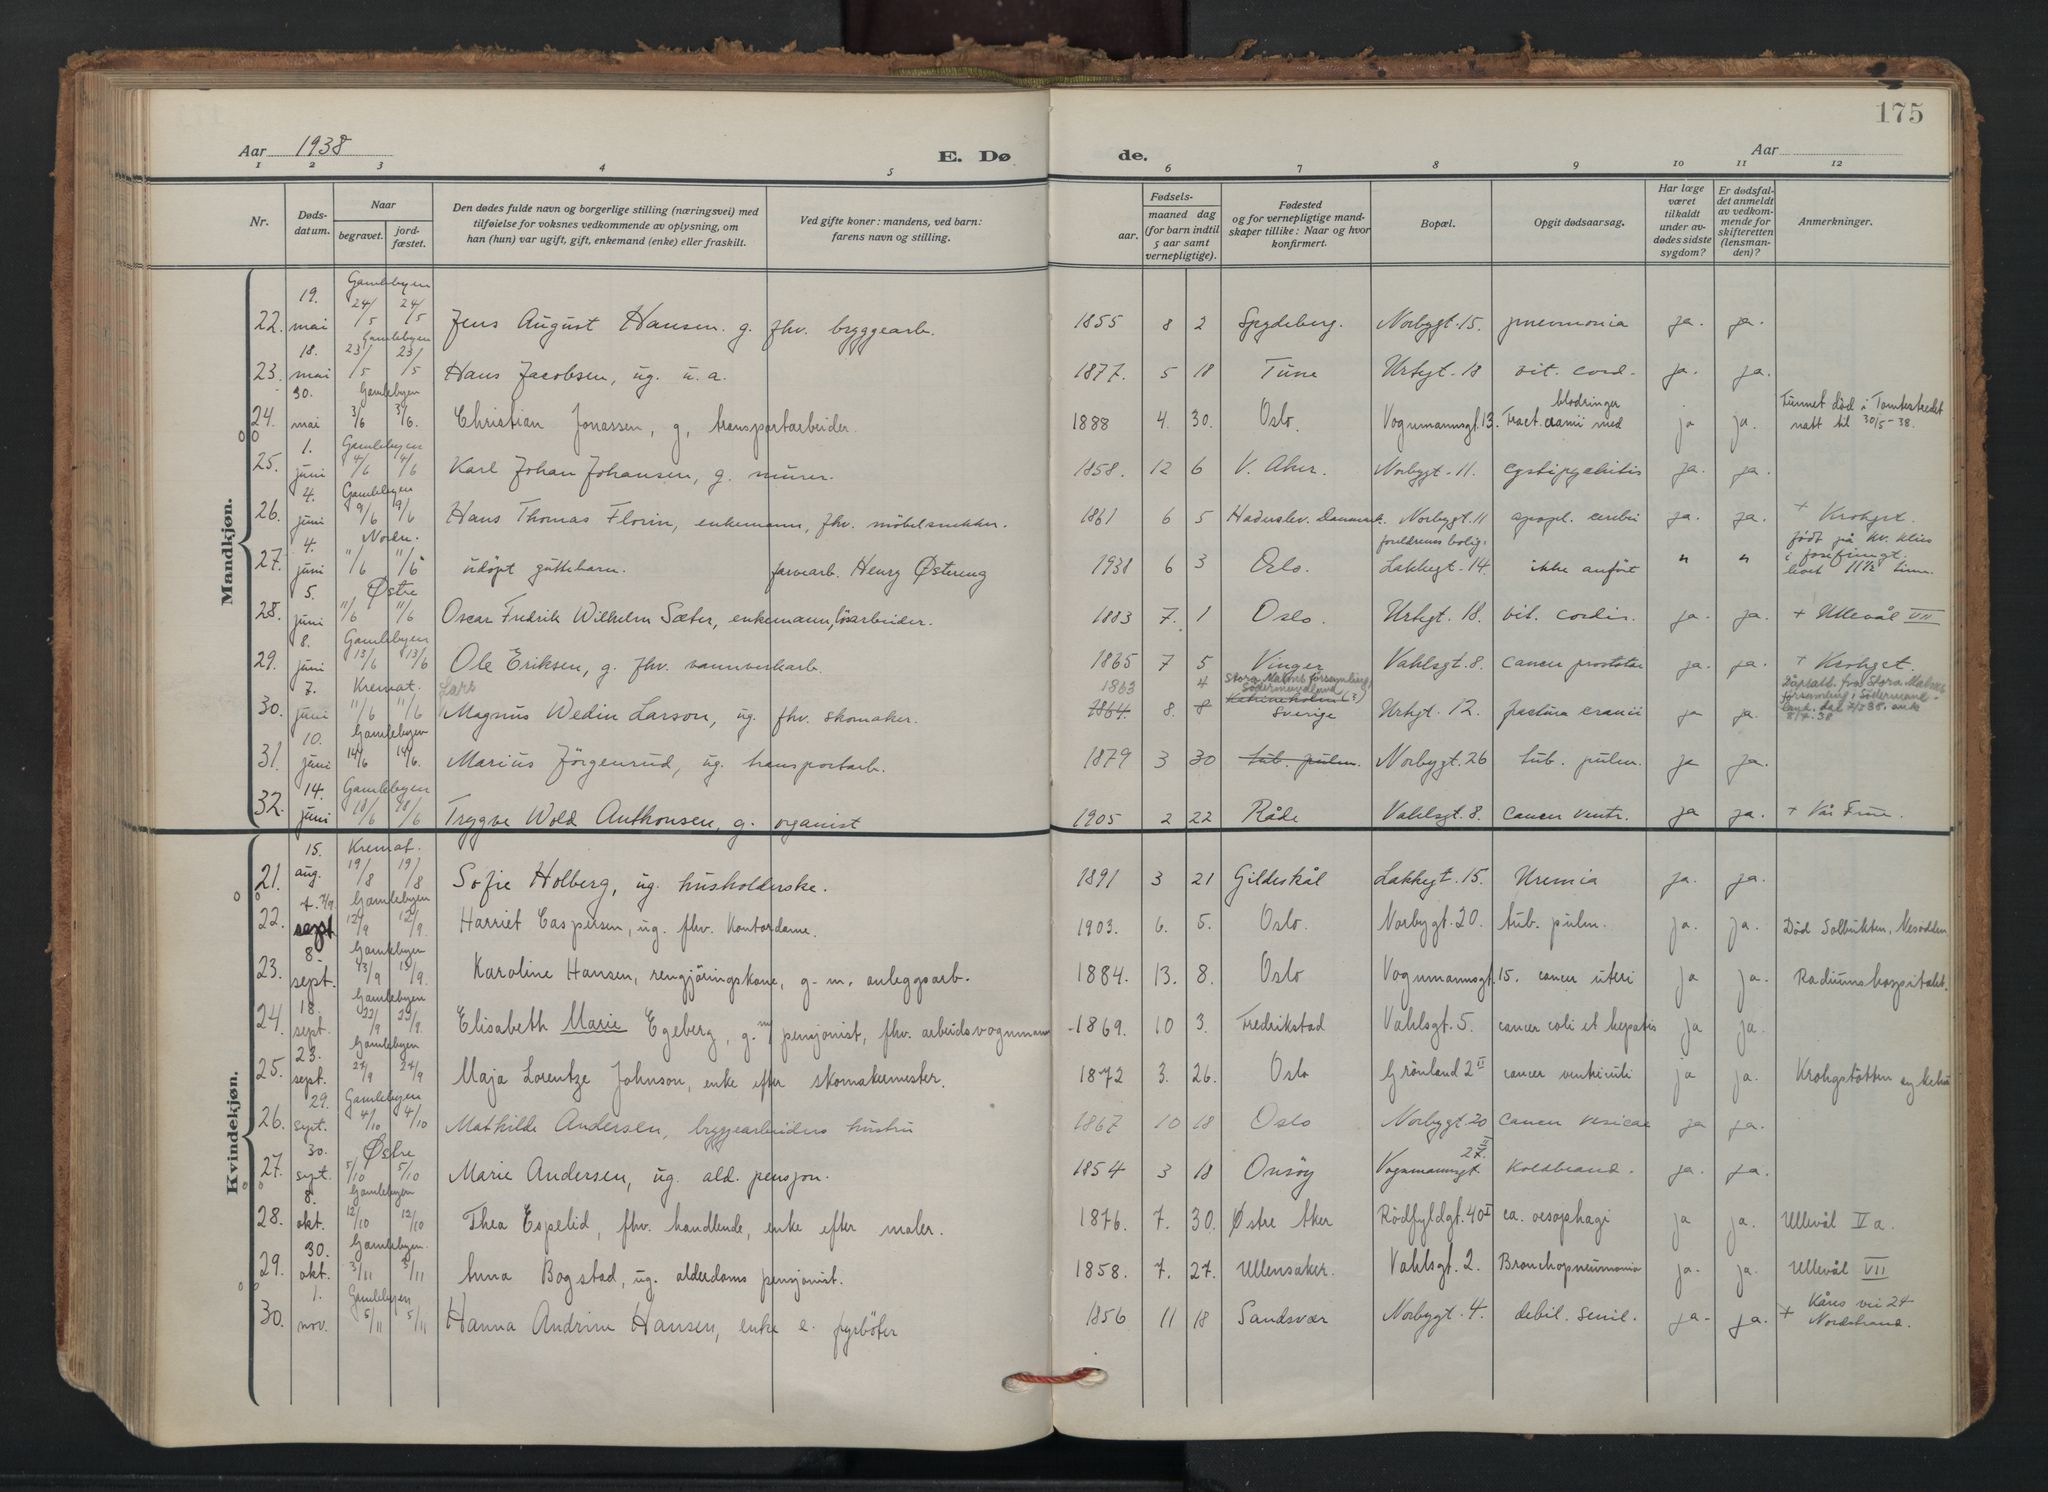 175
Aar 1938
E. Dø de.
Aar
1 2 3 4 5 6 7 8 9 10 11 12
Nr.
Døds-
datum.
Naar
begravet.
jord-
fæstet.
Den dødes fulde navn og borgerlige stilling (næringsvei) med
tilføielse for voksnes vedkommende av oplysning, om
han (hun) var ugift, gift, enkemand (enke) eller fraskilt.
Ved gifte koner: mandens, ved barn:
farens navn og stilling.
Fødsels-
aar.
maaned dag
(for barn indtil
5 aar samt
vernepligtige).
Fødested
og for vernepligtige mand-
skaper tillike: Naar og hvor
konfirmert.
Bopæl.
Opgit dødsaarsag.
Har læge
været
tilkaldt
under av-
dødes sidste
sygdom?
Er dødsfal-
det anmeldt
av vedkom-
mende for
skifteretten
(lensman-
den)?
Anmerkninger.
Mandkjøn.
19. Gamlebyen
22. mai 24/5 24/5 Jens August Hansen. g. fhv. bryggearb. 1855 8 2 Spydeberg. Norbygt. 15. pneumonia ja. ja.
18. Gamlebyen
23. mai 23/5 23/5 Hans Jacobsen, ug. u. a. 1877. 5 18 Tune Urtegt. 18 vit. cord. ja. ja.
30. Gamlebyen
24. mai 3/6 3/6. Christian Jonassen, g, transportarbeider. 1888 4. 30. Oslo. Vognmannsgt. 13. Fract. cranii med blødninger ja ja. Funnet død i Tomtestredet
natt til 30/5-38.
1. Gamlebyen
25. juni 4/6 4/6 Karl Johan Johansen, g. murer. 1858. 12 6 V. Aker. Norbygt. 11. cystipyelitis ja. ja.
4. Gamlebyen
26. juni 9/6 9/6 Hans Thomas Florin, enkemann, fhv. møbelsnekker. 1861 6 5 Haderslev. Danmark. Norbygt. 11 apopl. cerebri ja. ja. + Krohgst.
4. Nordre.
27. juni 11/6 11/6 udøpt guttebarn. farvearb. Henry Østereng 1938 6 3 Oslo. foreldrenes bolig.
Lakkegt. 14. ikke anført " " født på Kv. klin.
i Josefinegt.
levet 11 1/2 time.
5. Østre
28. juni 11/6 11/6 Oscar Fredrik Wilhelm Sæter, enkemann, løsarbeider. 1883 7. 1 Oslo. Urtegt. 18. vit. cordis. ja. ja. + Ullevål VII
8. Gamlebyen
29. juni 13/6 13/6 Ole Eriksen, g. fhv. vannverkarb. 1865 7 5 Vinger Vahlsgt. 8. cancer prostatae ja. ja. + Krohgst.
7. Kremat. Lars 1863 4 Stora Malms församling,
Södermanland
30. juni 11/6 11/6 Magnus Wedin Larson, ug. fhv. skomaker. 1864. 8. 8 Katrineholm (?)
Sverige Urtegt. 12. fractura cranii ja ja. Dåpsatt. fra Stora Malms
församling i Södermand-
land. dat 7/7 38.
8/7.38
10. Gamlebyen
31. juni 14/6 14/6. Marius Jörgensrud, ug. transportarb. 1879 3 30 tub. pulm. Norbygt. 26 tub. pulm. ja ja.
14. Gamlebyen
32. juni 18/6 18/6 Trygve Wold Anthonsen, g. organist 1905 2 22 Råde Vahlsgt. 8. cancer ventr. ja ja. + Vår Frue.
Kvindekjøn.
15. Kremat.
21. aug. 19/8 19/8 Sofie Holberg, ug. husholderske. 1891 3 21 Gildeskål Lakkegt. 15. Uremia ja. ja.
Gamlebyen
22. sept. 12/9 12/9. Harriet Caspersen, ug. fhv. Kontordame. 1903. 6. 5. Oslo. Norbygt. 20. tub. pulm. ja. ja. Død Solbukten, Nesodden
8. Gamlebyen
23. sept. 13/9 13/9. Karoline Hansen, rengjøringskone, g. m. anleggsarb. 1884. 13. 8. Oslo Vognmannsgt. 15. cancer uteri ja ja. Radiumshospitalet.
18. Gamlebyen
24. sept. 22/9 22/9. Elisabeth Marie Egeberg, g. m/ pensjonist, fhv. arbeidsvognmann 1869. 10 3. Fredrikstad Vahlsgt. 5. cancer coli et hepatis ja ja.
23. Gamlebyen
25. sept. 27/9 27/9 Maja Lorentze Johnson, enke efter skomakermester. 1872 3. 26. Oslo Grönland 2 II cancer ventriculi ja ja. Krohgstøtten sykehus
29. Gamlebyen
26. sept. 4/10 4/10 Mathilde Andersen, bryggearbeiders hustru 1867 10 18 Oslo Norbygt. 20 cancer vesicae ja ja.
30. Østre
27. sept. 5/10 5/10 Marie Andersen, ug. ald. pensjon. 1854 3 18 Onsøy Vognmannsgt. 27. II Koldbrand. ja. ja.
8. Gamlebyen
28. okt. 12/10 12/10 Thea Espelid, fhv. handlende, enke efter maler. 1876. 7. 30. Østre Aker Rödfyldgt. 40 I ca. oesophagi ja ja. Ullevål V a.
30. Gamlebyen.
29. okt. 3/11 3/11 Anna Bogstad, ug. alderdoms pensjonist. 1858. 7. 27. Ullensaker. Vahlsgt. 2. Bronchopneumonia ja. ja. Ullevål VII
1. Gamlebyen
30. nov. 5/11 5/11 Hanna Andrine Hansen, enke e. fyrbøter 1856 11 18 Sandsvær Norbygt. 4. debil. senil. ja. ja. + Kåres vei 24
Nordstrand.